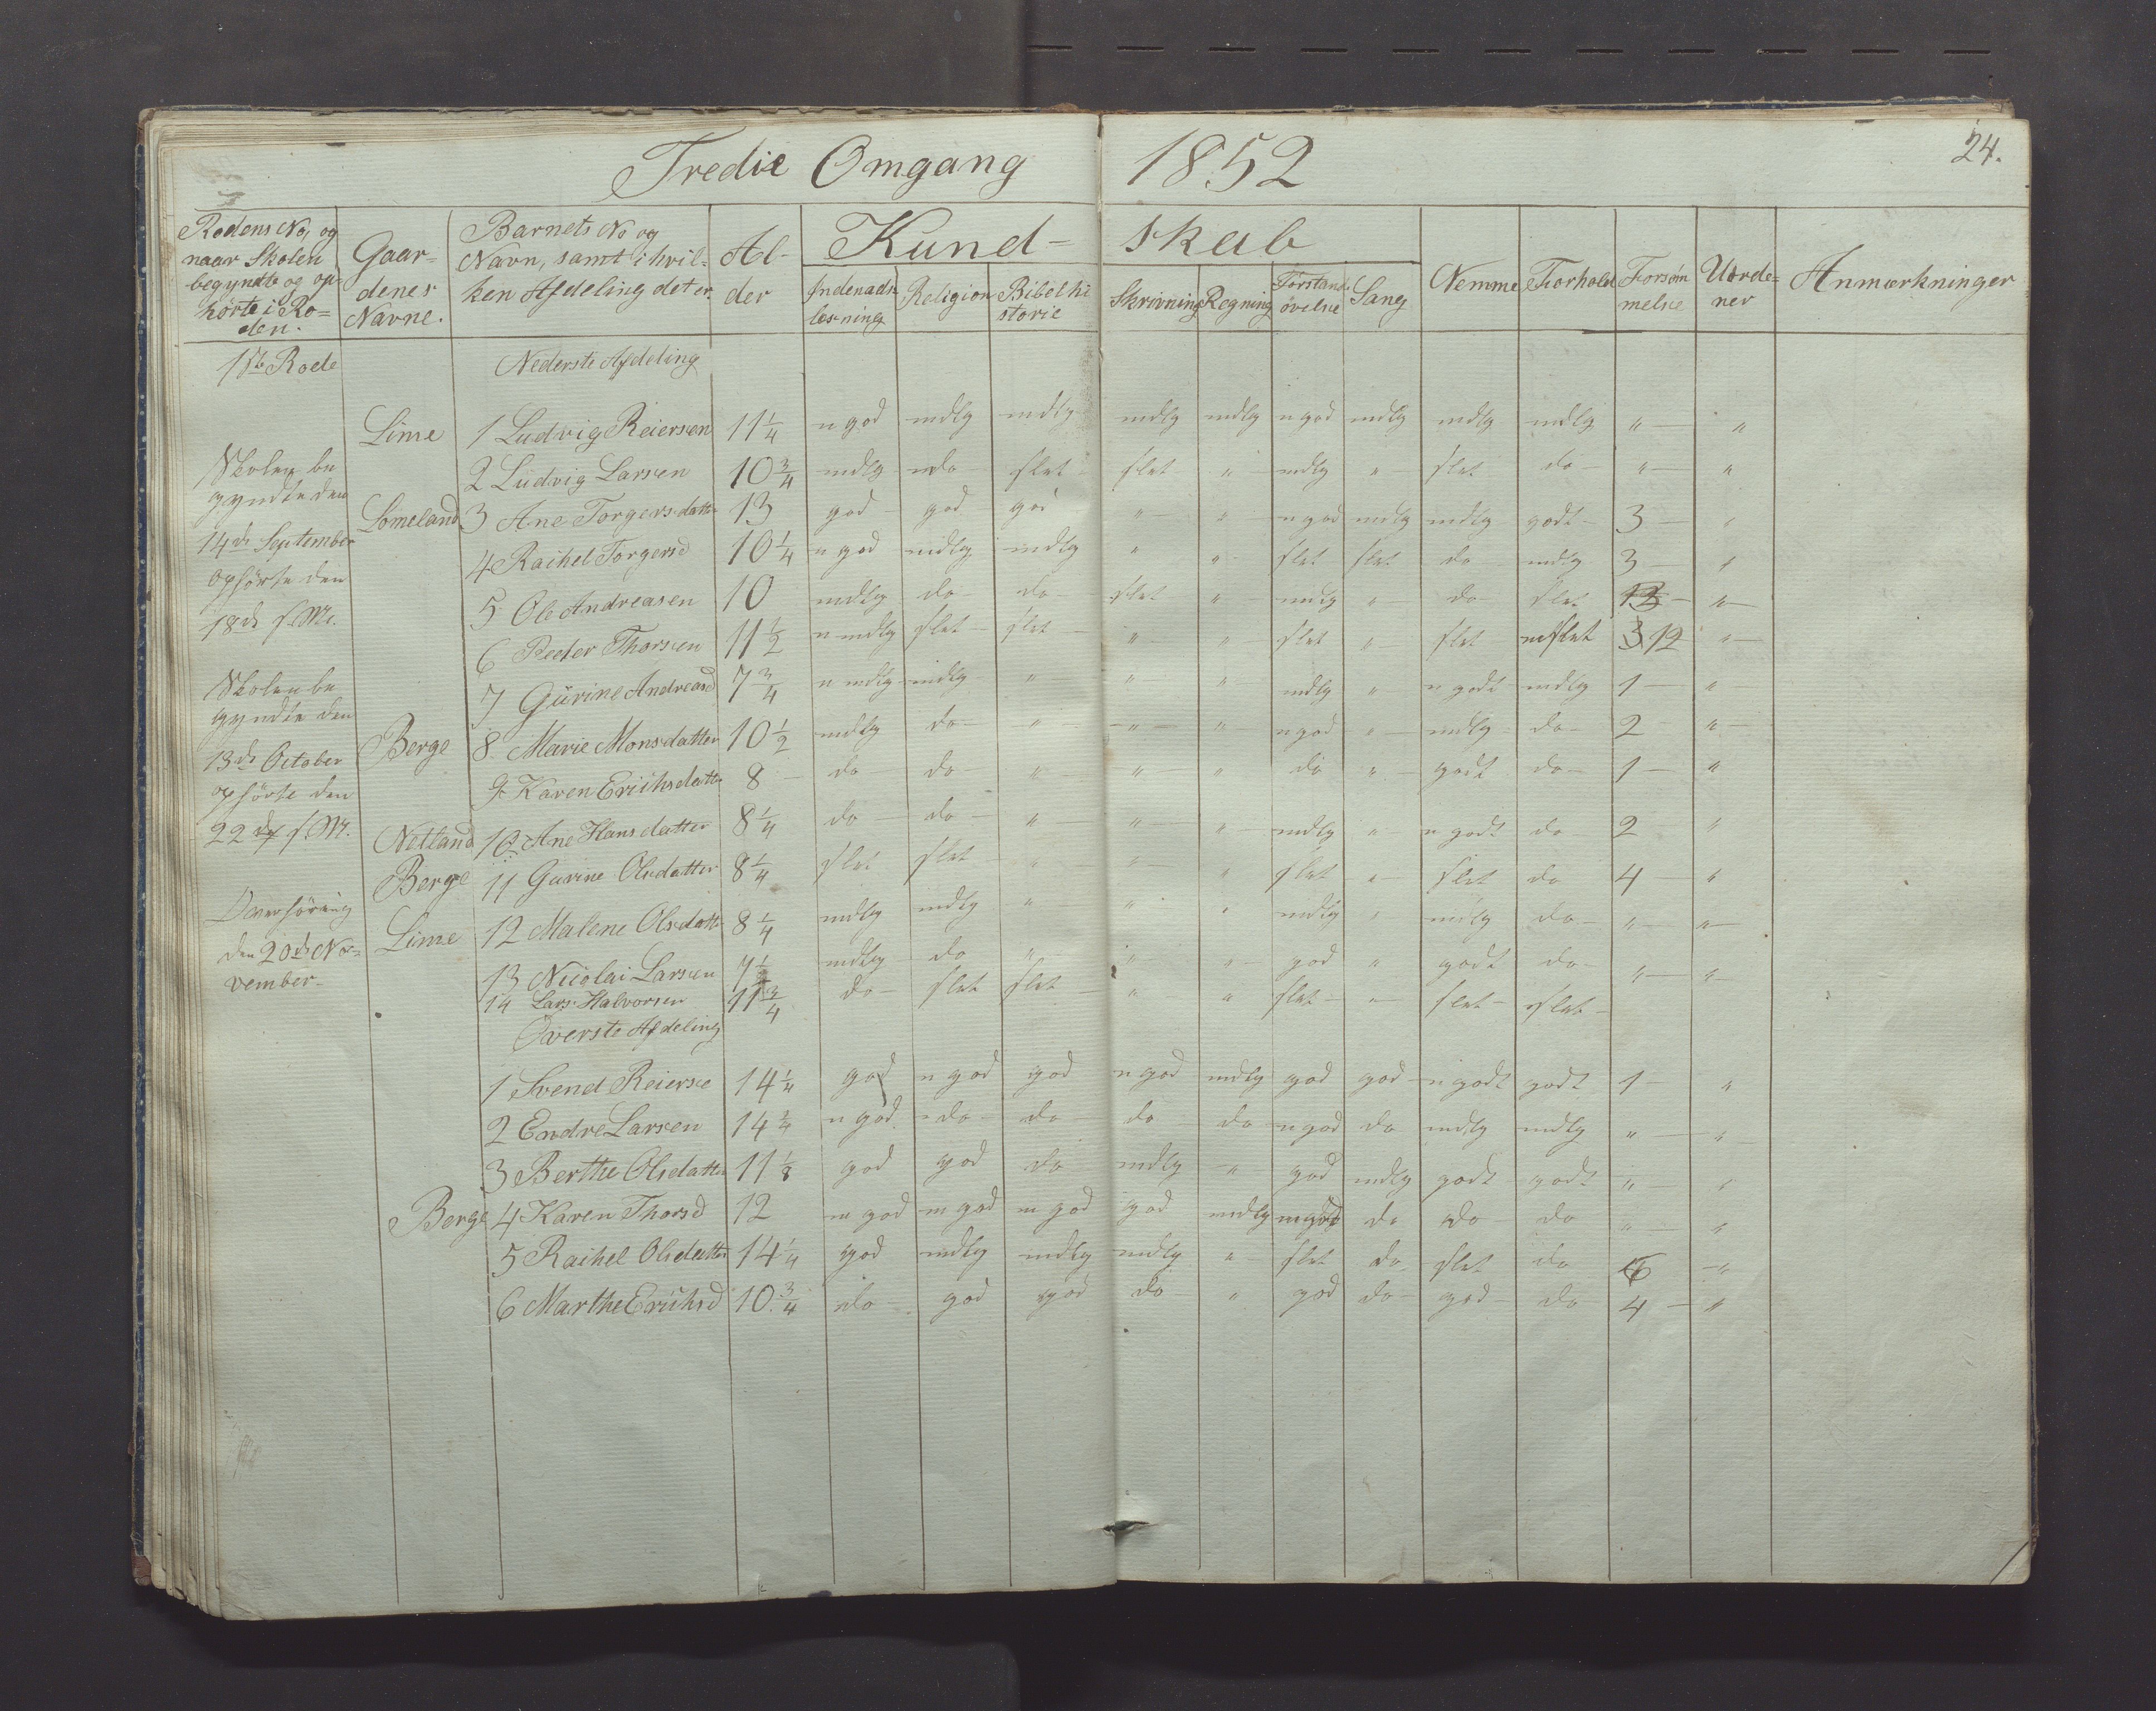 Tredie Omgang 1852
24.
Rodens No, og naar Skolen begyndte og ophörte i Roden. Gaardenes Navne. Barnets No og Navn, samt i hvilken Afdeling det er. Alder Kundskab Nemme Forhold Forsømmelse Uordener Anmærkninger
Indenadslæsning Religion Bibelhistorie Skrivning Regning Forstandsövelse Sang
1ste Rode Nederste Afdeling
Lime 1 Ludvig Reiersen 11 1/4 n god mdlg mdlg mdlg mdlg n god mdlg mdlg mdlg " "
2 Ludvig Larsen 10 3/4 mdlg do slet slet " mdlg " slet do " "
Lomeland 3 Ane Torgersdatter 13 god god god " " n god mdlg mdlg godt 3 "
4 Raihel Torgersd 10 1/4 n god mdlg mdlg " " slet slet do mdlg 3 "
5 Ole Andreasen 10 mdlg do do slet " mdlg " do slet "
6 Peder Thorsen 11 1/2 n mdlg slet slet " " slet " slet mslet 12 "
7 Gürine Andreasd 7 3/4 n mdlg mdlg " " " mdlg " n godt mdlg 1 "
Berge 8 Marie Monsdatter 10 1/2 mdlg do " " " n god " mdlg do 2 "
9 Karen Erichsdatter 8 do do " " " do " godt do 1 "
Netland 10 Ane Hansdatter 8 1/4 do do " " " mdlg " n godt do 2 "
Berge 11 Gurine Olsdatter 8 1/4 slet slet " " " slet " slet do 4 "
Lime 12 Malene Olsdatt 8 1/4 mdlg mdlg " " " mdlg " mdlg do " "
13 Nicolai Larsen 7 mdlg do " " " god " godt do " "
14 Lars Halvorsen 11 3/4 do slet slet " " slet " slet slet
Skolen be
gyndte den
14de September
ophörte den
18de s.M.
Skolen be
gyndte den
13de October
ophörte den
22de s.M.
Overhöring
den 20de No-
vember
Överste Afdeling
1 Svend Reierse 14 1/4 god n god god n god mdlg god god n godt godt 1 "
2 Endre Larsen 14 3/4 n god do do do do n god do mdlg mdlg " "
3 Berthe Olsdatter 11 1/8 god god do mdlg " god mdlg godt godt " "
Berge 4 Karen Thorsd 12 m god m god m god god mdlg mgod do do do " "
5 Raihel Olsdatter 14 1/4 god mdlg mdlg mdlg " slet do slet do 6 "
6 Marthe Erichsd 10 3/4 do god god do " god do god do 4 "